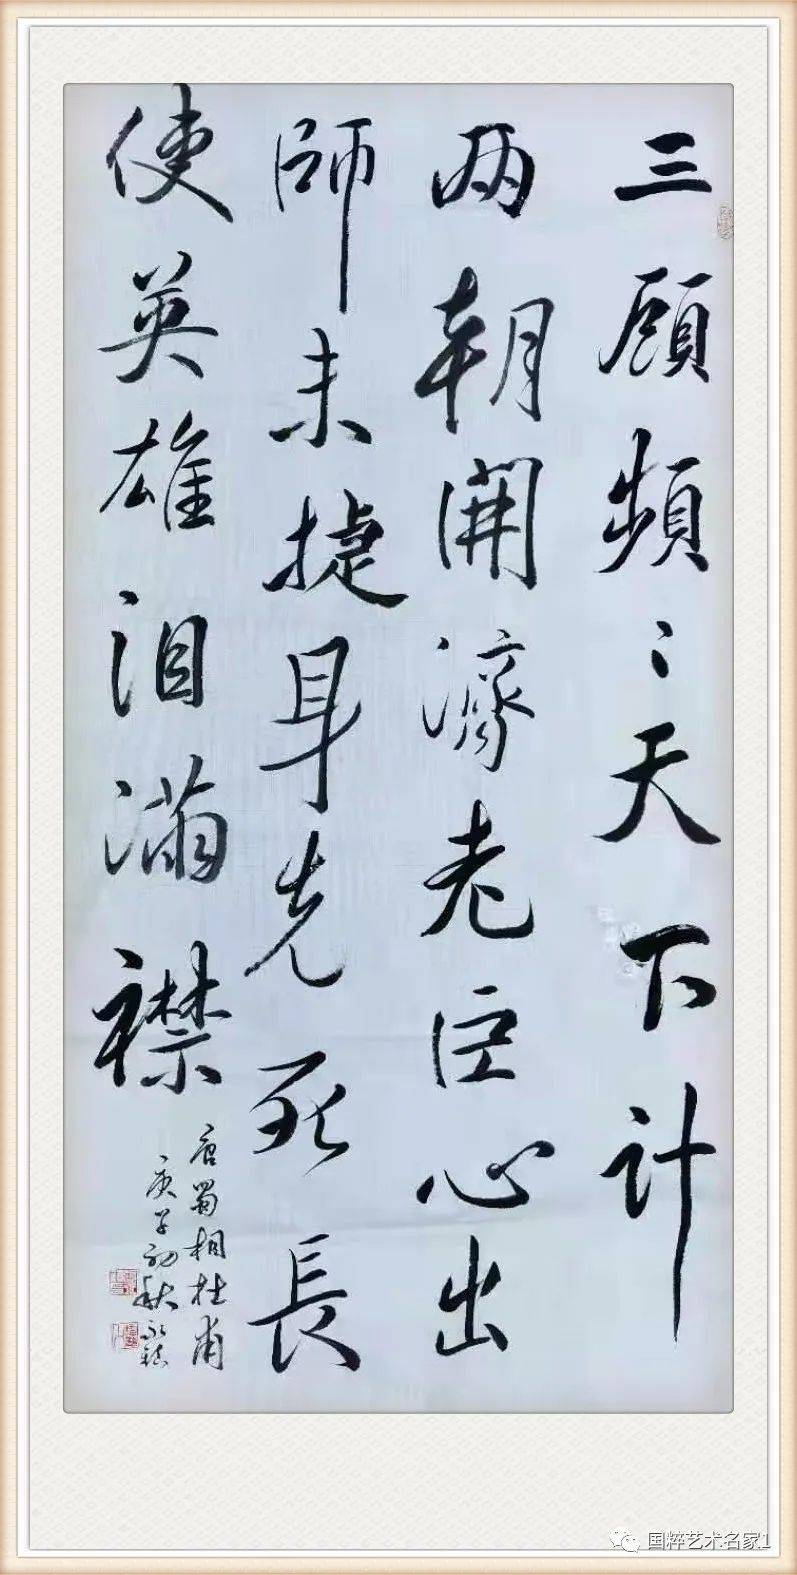 三顧頻〻天下计
两朝開濟老臣心出
師未捷身先死長
使英雄泪满襟
唐蜀相杜甫
庚子初秋
国粹艺术名家1